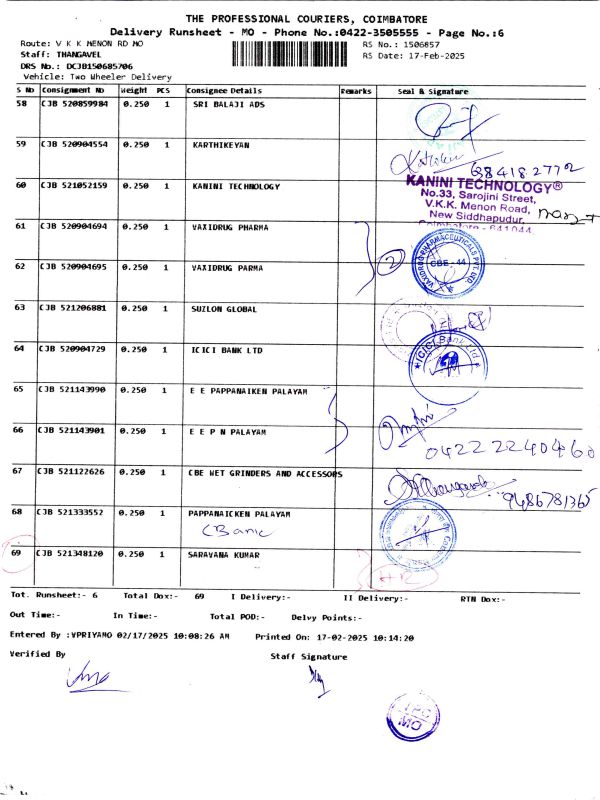 THE PROFESSIONAL COURIERS, COIMBATORE
Delivery Runsheet - MO - Phone No.:0422-3505555 - Page No.:6
Route: V K K MENON RD MO
RS No.: 1506857
Staff: THANGAVEL
RS Date: 17-Feb-2025
DRS No.: DCJB150685706
Vehicle: Two Wheeler Delivery
S No Consignment No Weight PCS Consignee Details Remarks Seal & Signature
58 CJB 520859984 0.250 1 SRI BALAJI ADS
59 CJB 520904554 0.250 1 KARTHIKEYAN
638418 2772
60 CJB 521052159 0.250 1 KANINI TECHNOLOGY
KANINI TECHNOLOGY®
No.33, Sarojini Street,
V.K.K. Menon Road,
New Siddhapudur,
Coimbatore - 641044.
61 CJB 520904694 0.250 1 VAXIDRUG PHARMA
2
VAXIDRUG PHARMACEUTICALS PVT. LTD.
CBE - 44
62 CJB 520904695 0.250 1 VAXIDRUG PARMA
63 CJB 521206881 0.250 1 SUZLON GLOBAL
64 CJB 520904729 0.250 1 ICICI BANK LTD
ICICI Bank Ltd
65 CJB 521143990 0.250 1 E E PAPPANAIKEN PALAYAM
66 CJB 521143901 0.250 1 E E P N PALAYAM
0422 2240460
67 CJB 521122626 0.250 1 CBE WET GRINDERS AND ACCESSORS
9486781365
68 CJB 521333552 0.250 1 PAPPANAICKEN PALAYAM
69 CJB 521348120 0.250 1 SARAVANA KUMAR
Tot. Runsheet:- 6 Total Dox:- 69 I Delivery:- II Delivery:- RTN Dox:-
Out Time:- In Time:- Total POD:- Delvy Points:-
Entered By :VPRIYAMO 02/17/2025 10:08:26 AM Printed On: 17-02-2025 10:14:20
Verified By Staff Signature